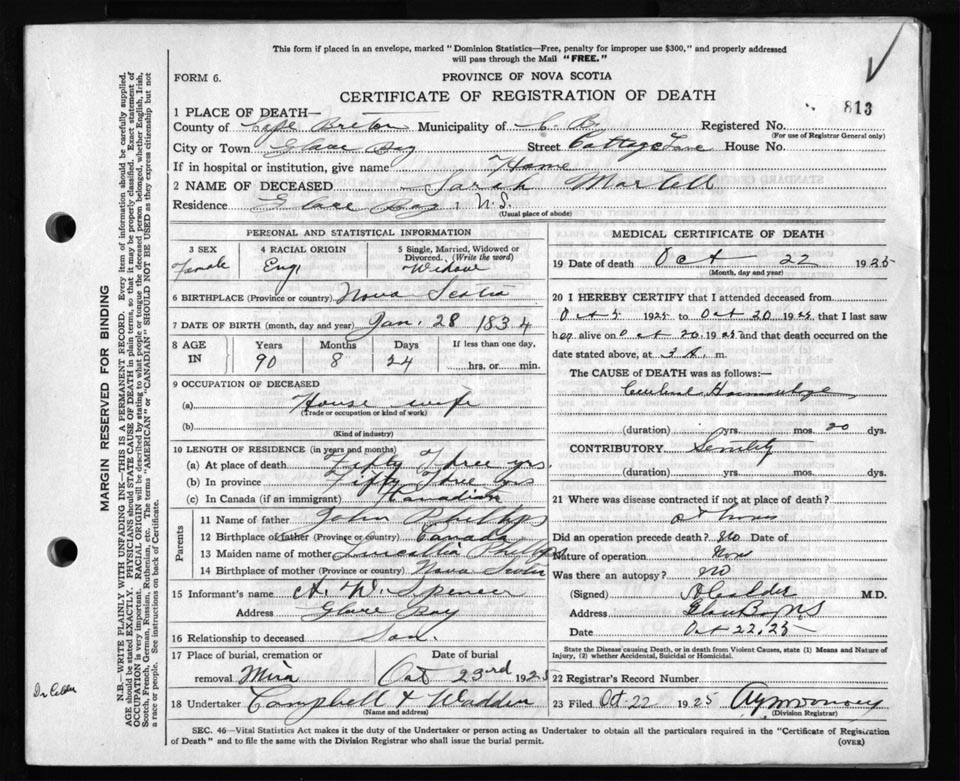 This form if placed in an envelope, marked "Dominion Statistics—Free, penalty for improper use $300," and properly addressed
will pass through the Mail "FREE."
FORM 6.
PROVINCE OF NOVA SCOTIA
CERTIFICATE OF REGISTRATION OF DEATH
813
1 PLACE OF DEATH—
County of Cape Breton Municipality of C. B. Registered No.
(For use of Registrar General only)
City or Town Glace Bay Street Cottage Lane House No.
If in hospital or institution, give name Home
2 NAME OF DECEASED Sarah Martell
Residence Glace Bay, N.S.
(Usual place of abode)
PERSONAL AND STATISTICAL INFORMATION
3 SEX Female
4 RACIAL ORIGIN Eng
5 Single, Married, Widowed or Divorced. (Write the word) Widow
6 BIRTHPLACE (Province or country) Nova Scotia
7 DATE OF BIRTH (month, day and year) Jan. 28 1834
8 AGE IN
Years Months Days If less than one day,
90 8 24 hrs. or min.
9 OCCUPATION OF DECEASED
(a) House wife
(Trade or occupation or kind of work)
(b)
(Kind of industry)
10 LENGTH OF RESIDENCE (in years and months)
(a) At place of death Fifty Three yrs.
(b) In province Fifty Three yrs
(c) In Canada (if an immigrant) Canadian
Parents
11 Name of father John Phillips
12 Birthplace of father (Province or country) Canada
13 Maiden name of mother Phillips
14 Birthplace of mother (Province or country) Nova Scotia
15 Informant's name A. W. Spencer
Address Glace Bay
16 Relationship to deceased Son.
17 Place of burial, cremation or removal Mira
Date of burial Oct 23rd 1925
18 Undertaker Campbell & Wadden
(Name and address)
MEDICAL CERTIFICATE OF DEATH
19 Date of death Oct 22 1925
(Month, day and year)
20 I HEREBY CERTIFY that I attended deceased from
Oct 5 1925 to Oct 20 1925, that I last saw
her alive on Oct 20, 1925 and that death occurred on the
date stated above, at 3 A. m.
The CAUSE of DEATH was as follows:—
Cerebral Haemorrhage
(duration) yrs. mos. 20 dys.
CONTRIBUTORY Senility
(duration) yrs. mos. dys.
21 Where was disease contracted if not at place of death?
at home
Did an operation precede death? No Date of
Nature of operation None
Was there an autopsy? No
(Signed) Calder M.D.
Address Glace Bay NS
Date Oct 22, 25
State the Disease causing Death, or in death from Violent Causes, state (1) Means and Nature of
Injury, (2) whether Accidental, Suicidal or Homicidal.
22 Registrar's Record Number
23 Filed Oct. 22 1925
(Division Registrar)
SEC. 46—Vital Statistics Act makes it the duty of the Undertaker or person acting as Undertaker to obtain all the particulars required in the "Certificate of Registration
of Death" and to file the same with the Division Registrar who shall issue the burial permit.
(OVER)
MARGIN RESERVED FOR BINDING
N.B.—WRITE PLAINLY WITH UNFADING INK—THIS IS A PERMANENT RECORD. Every item of information should be carefully supplied.
AGE should be stated EXACTLY. PHYSICIANS should STATE CAUSE OF DEATH in plain terms, so that it may be properly classified. Exact statement of
OCCUPATION is very important. RACIAL ORIGIN will be described by stating to what people or tongue the deceased person belonged, whether English, Irish,
Scotch, French, German, Russian, Ruthenian, etc. The terms "AMERICAN" or "CANADIAN" SHOULD NOT BE USED as they express citizenship but not
a race or people. See instructions on back of Certificate.
Dr Calder